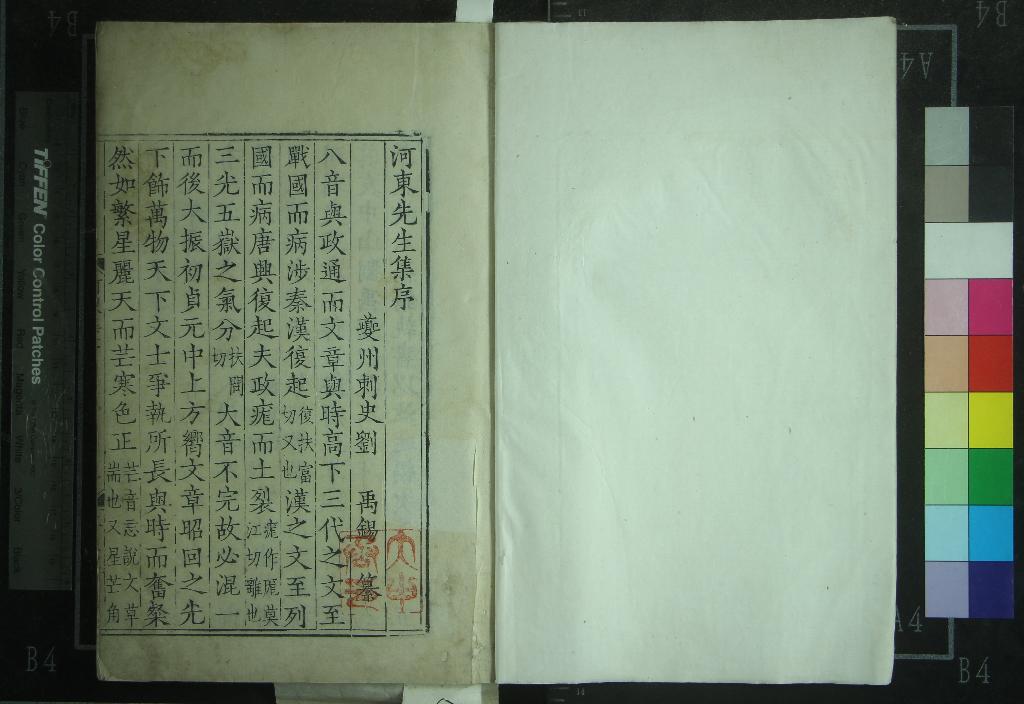 河東先生集序
夔州刺史劉 禹錫 纂
八音與政通而文章與時高下三代之文至
戰國而病涉秦漢復起復扶富切又也漢之文至列
國而病唐興復起夫政痝而土裂痝作厖莫江切雜也
三光五嶽之氣分扶問切大音不完故必混一
而後大振初貞元中上方嚮文章昭回之光
下飾萬物天下文士爭執所長與時而奮粲
然如繁星麗天而芒寒色正芒音忘說文草耑也又星芒角
TIFFEN Color Control Patches
B4
B4
A4
A4
B4
B4